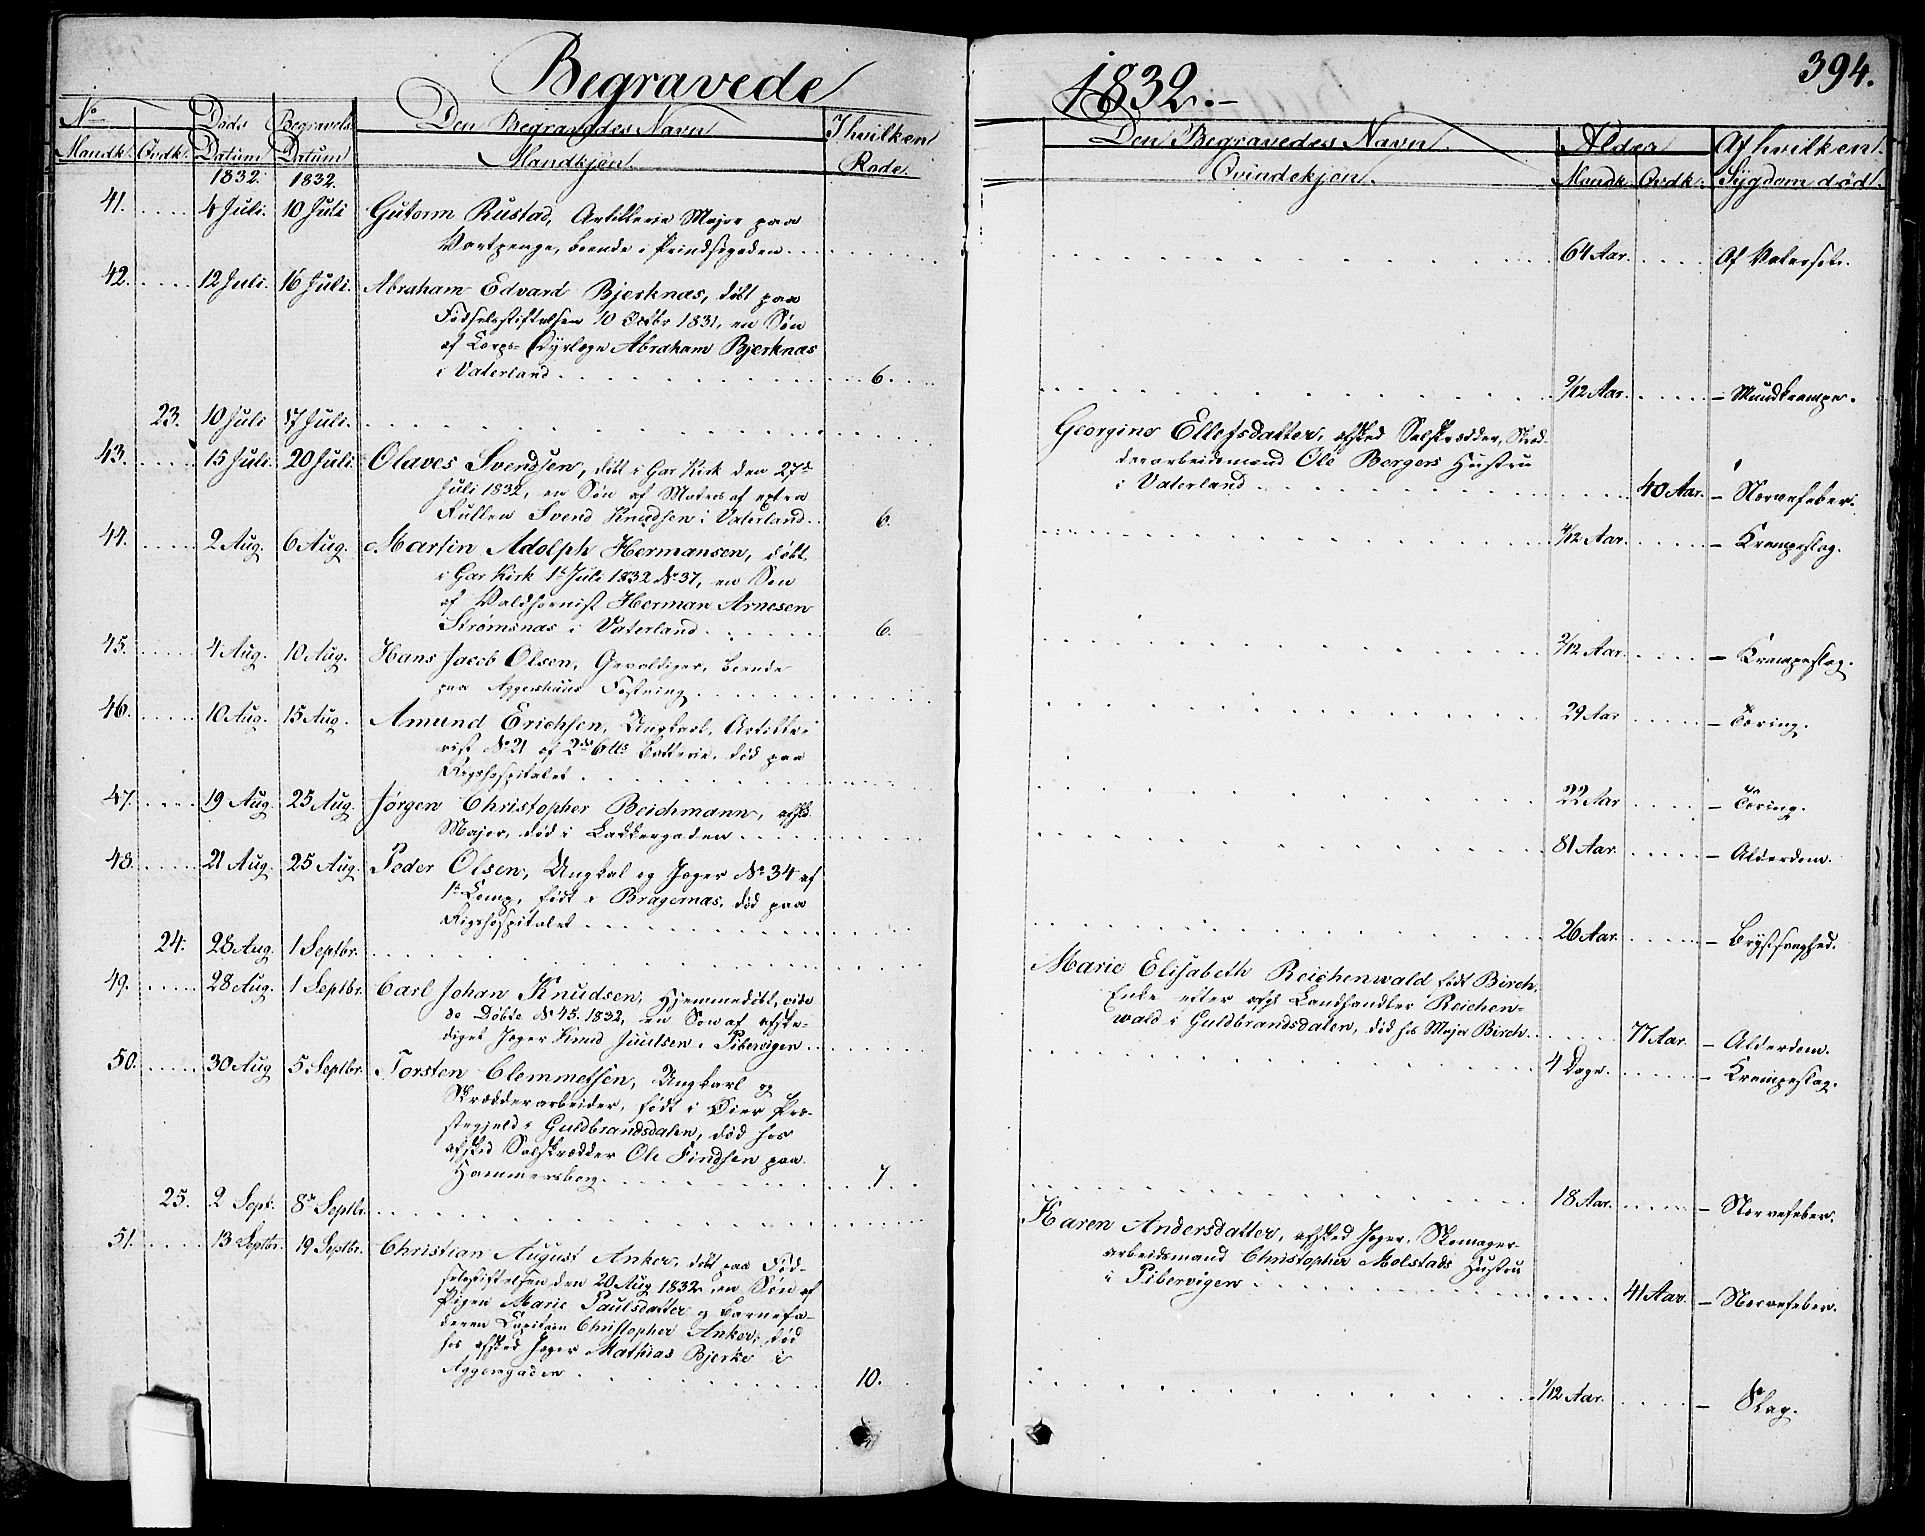 Begravede
1832.
394.
No
Mandk. Qvdk.
Døds Datum
Begravels Datum
Den Begravedes Navn
Mandkjøn.
I hvilken Rode.
Den Begravedes Navn
Qvindekjøn.
Alder
Mandk. Qvdk.
Af hvilken
Sygdom død.
1832. 1832.
41. 4 Juli. 10 Juli Gutorm Rustad, Artillerie Major paa
Vartpenge, boende i Prindsegaden
64 Aar. Af Vatersot.
42. 12 Juli. 16 Juli. Abraham Edvard Bjerknæs, døbt paa
Fødselsstiftelsen 10 Octbr 1831, en Søn
af Corps-Dyrlæge Abraham Bjerknæs
i Vaterland 6.
9/12 Aar. – Mundkrampe.
23. 10 Juli 17 Juli.
Georgine Ellefsdatter, afsked Salskrædder, Skræd-
derarbeidsmand Ole Bergers Hustru
i Vaterland 40 Aar. – Nervefeber.
43. 15 Juli. 20 Juli. Olaves Svendsen, døbt i Gar Kirk den 27de
Juli 1832, en Søn af Matros af extra
Rullen Svend Knudsen i Vaterland 6.
4/12 Aar. – Krampeslag.
44. 2 Aug. 6 Aug. Martin Adolph Hermansen, døbt
i Gar Kirk 1ste Juli 1832 No 37, en Søn
af Valdhornist Herman Arnesen
Strømsnæs i Vaterland 6.
2/12 Aar. – Krampeslag.
45. 4 Aug. 10 Aug. Hans Jacob Olsen, Gevaldiger, boende
paa Aggershuus Fæstning
29 Aar – Tæring.
46. 10 Aug. 15 Aug. Amund Erichsen, Ungkarl, Artille-
rist No 21 af 2det 6 ℔s Batterie, død paa
Rigshospitalet
22 Aar – Tæring.
47. 19 Aug. 25 Aug. Jørgen Christopher Beichmann, afskd
Major, død i Lakkergaden
81 Aar. – Alderdom.
48. 21 Aug. 25 Aug. Peder Olsen, Ungkal og Jæger No 34 af
1ste Comp, født i Bragernæs, død paa
Rigshospitalet
26 Aar. – Brystsvaghed.
24. 28 Aug. 1 Septbr.
Marie Elisabeth Reichenwald født Birch,
Enke efter afgd Landhandler Reichen-
wald i Guldbrandsdalen, død hos Major Birch
77 Aar. – Alderdom.
49. 28 Aug. 1 Septbr. Carl Johan Knudsen, Hjemmedøbt, vide
de Døbte No 45. 1832, en Søn af afske-
diget Jæger Knud Juulsen i Pibervigen
4 Dage. – Krampeslag.
50. 30 Aug 5 Septbr. Torsten Clemmetsen, Ungkarl og
Skrædderarbeider, født i Øier Præ-
stegjeld i Guldbrandsdalen, død hos
afsked Salskrædder Ole Findsen paa
Hammersborg 7.
18 Aar. – Nervefeber.
25. 2 Sept. 8de Septbr.
Karen Andersdatter, afsked Jæger, Skomager-
arbeidsmand Christopher Molstads Hustru
i Pibervigen 41 Aar. – Nervefeber.
51. 13 Septbr. 19 Septbr. Christian August Anker, døbt paa Fød-
selsstiftelsen den 20 Aug 1832 en Søn af
Pigen Marie Paulsdatter og Barnefa-
deren Capitain Christopher Anker, død
hos afsked Jæger Mathias Bjerke i
Aggersgaden 10.
1/12 Aar. – Slag.